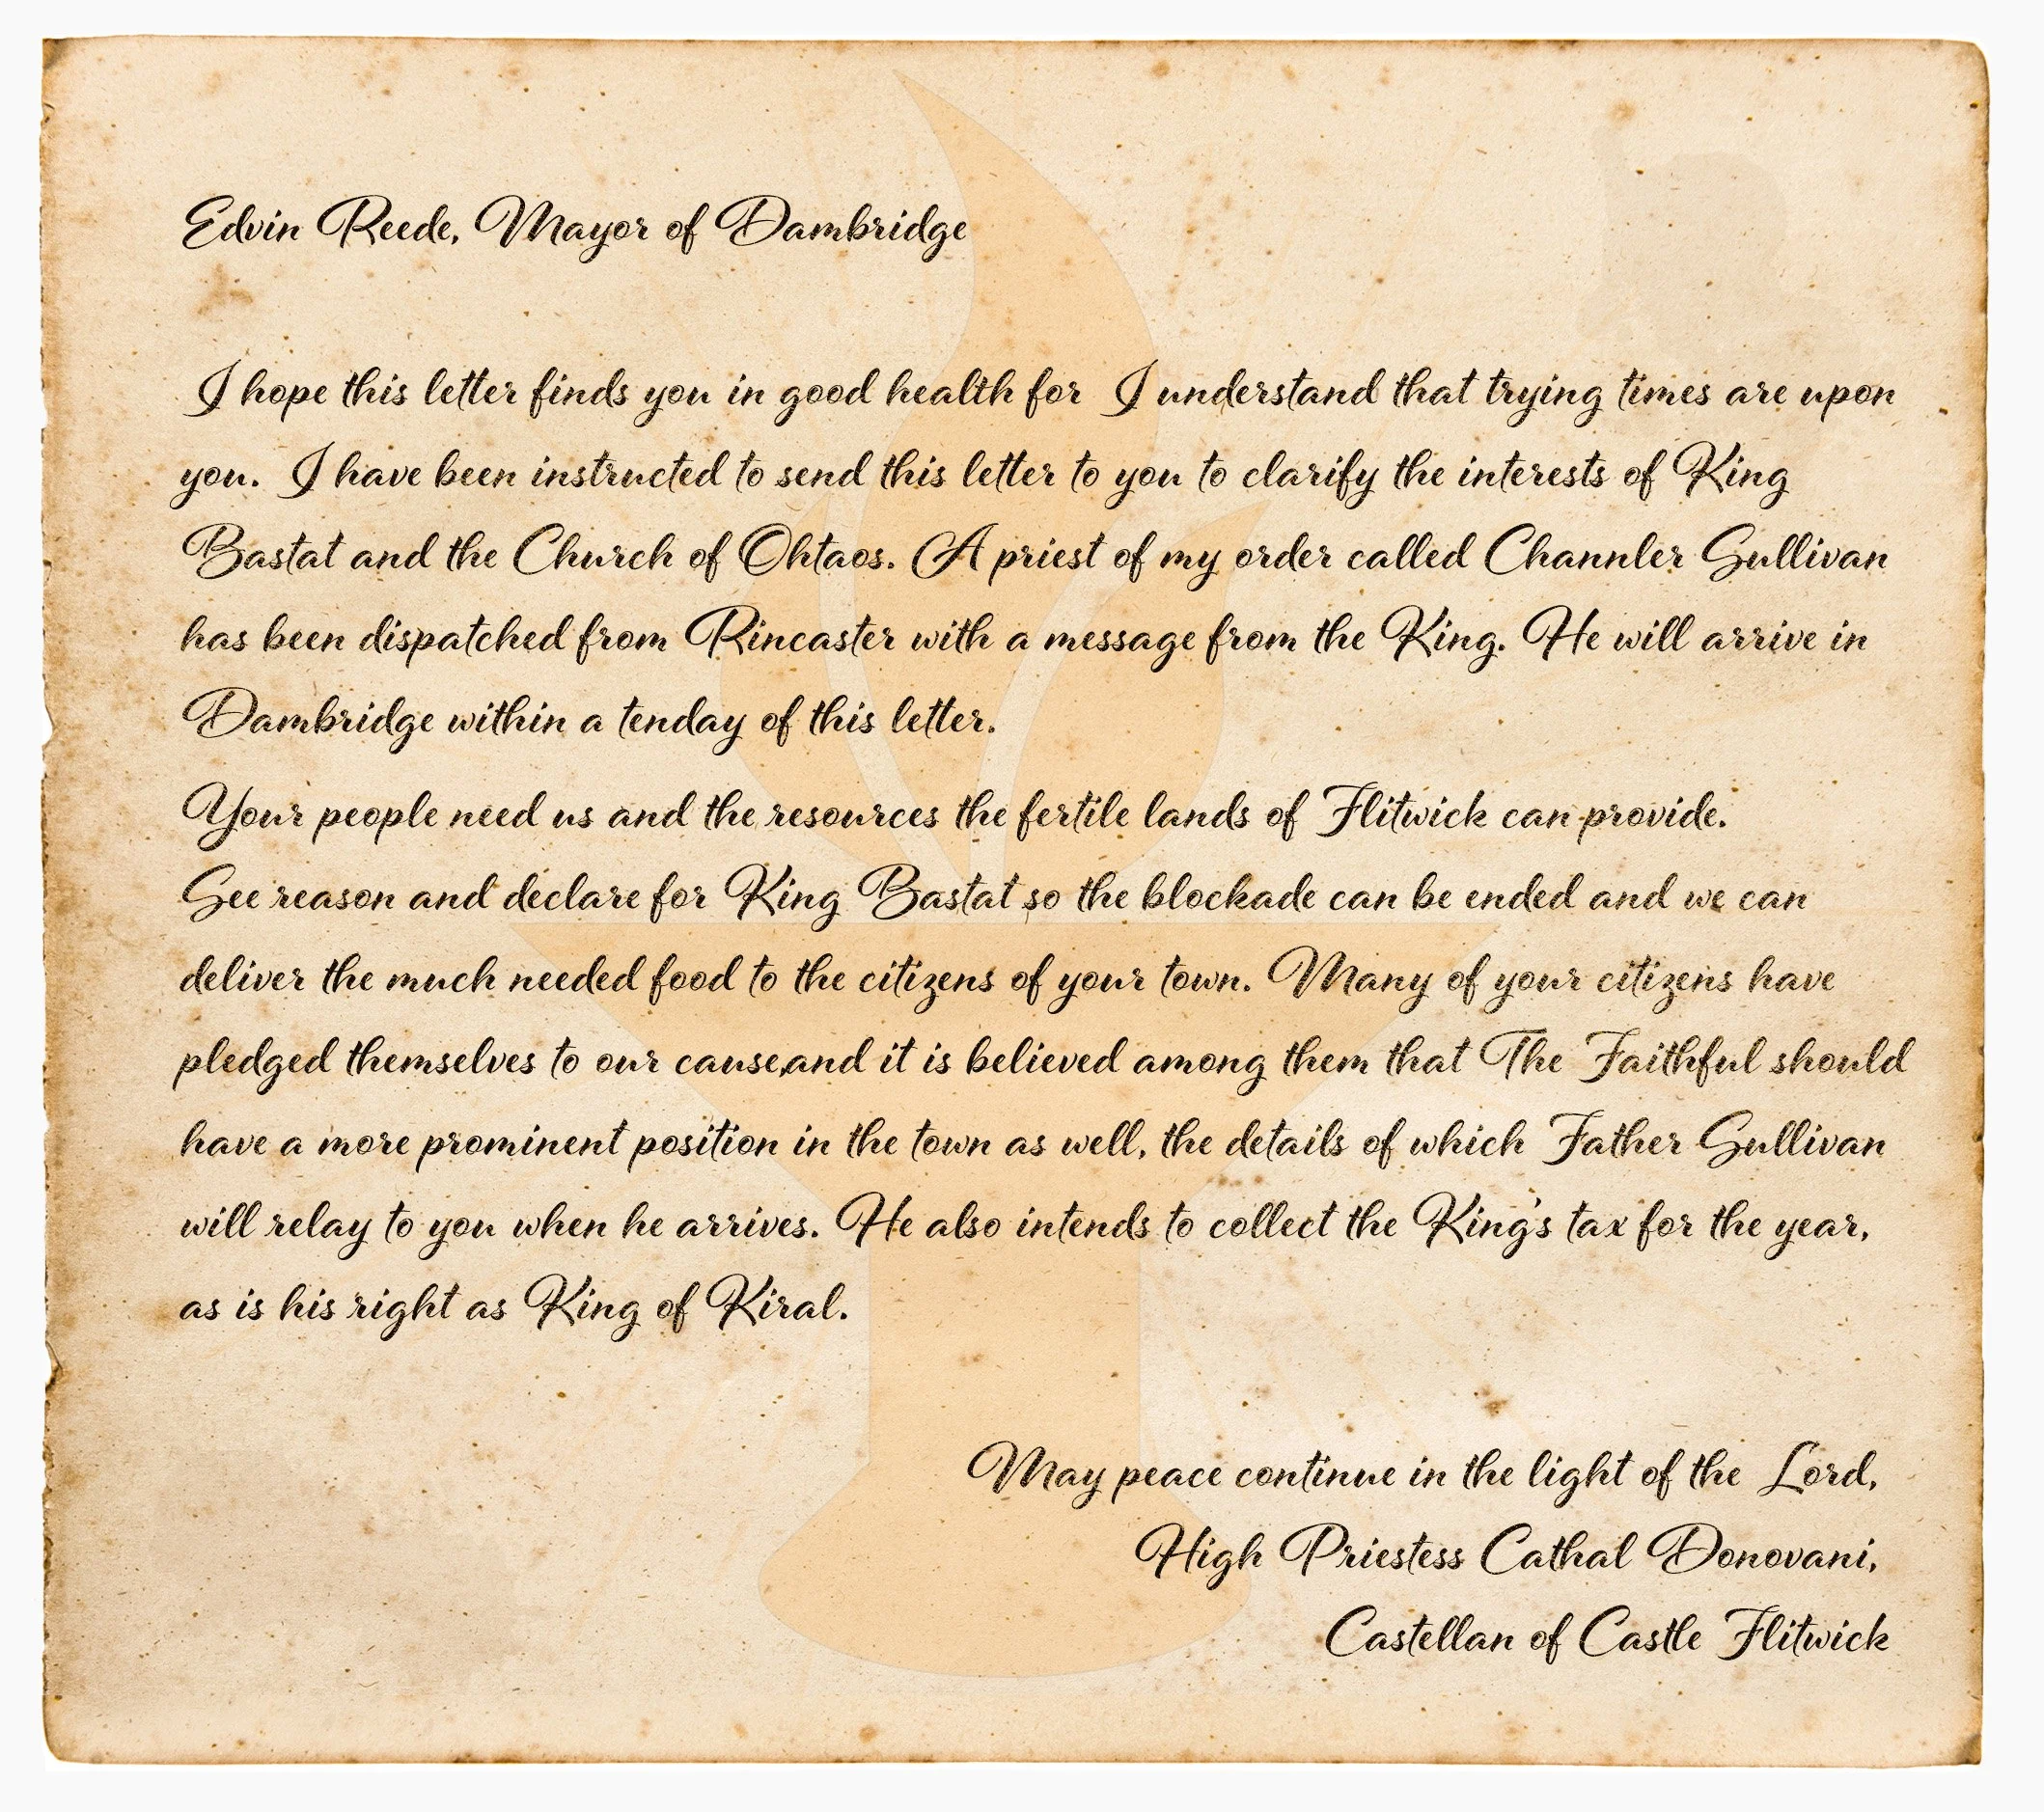 Edvin Reede, Mayor of Dambridge
I hope this letter finds you in good health for I understand that trying times are upon
you. I have been instructed to send this letter to you to clarify the interests of King
Bastat and the Church of Ohtaos. A priest of my order called Channler Sullivan
has been dispatched from Rincaster with a message from the King. He will arrive in
Dambridge within a tenday of this letter.
Your people need us and the resources the fertile lands of Flitwick can provide.
See reason and declare for King Bastat so the blockade can be ended and we can
deliver the much needed food to the citizens of your town. Many of your citizens have
pledged themselves to our cause,and it is believed among them that The Faithful should
have a more prominent position in the town as well, the details of which Father Sullivan
will relay to you when he arrives. He also intends to collect the King's tax for the year,
as is his right as King of Kiral.
May peace continue in the light of the Lord,
High Priestess Cathal Donovani,
Castellan of Castle Flitwick